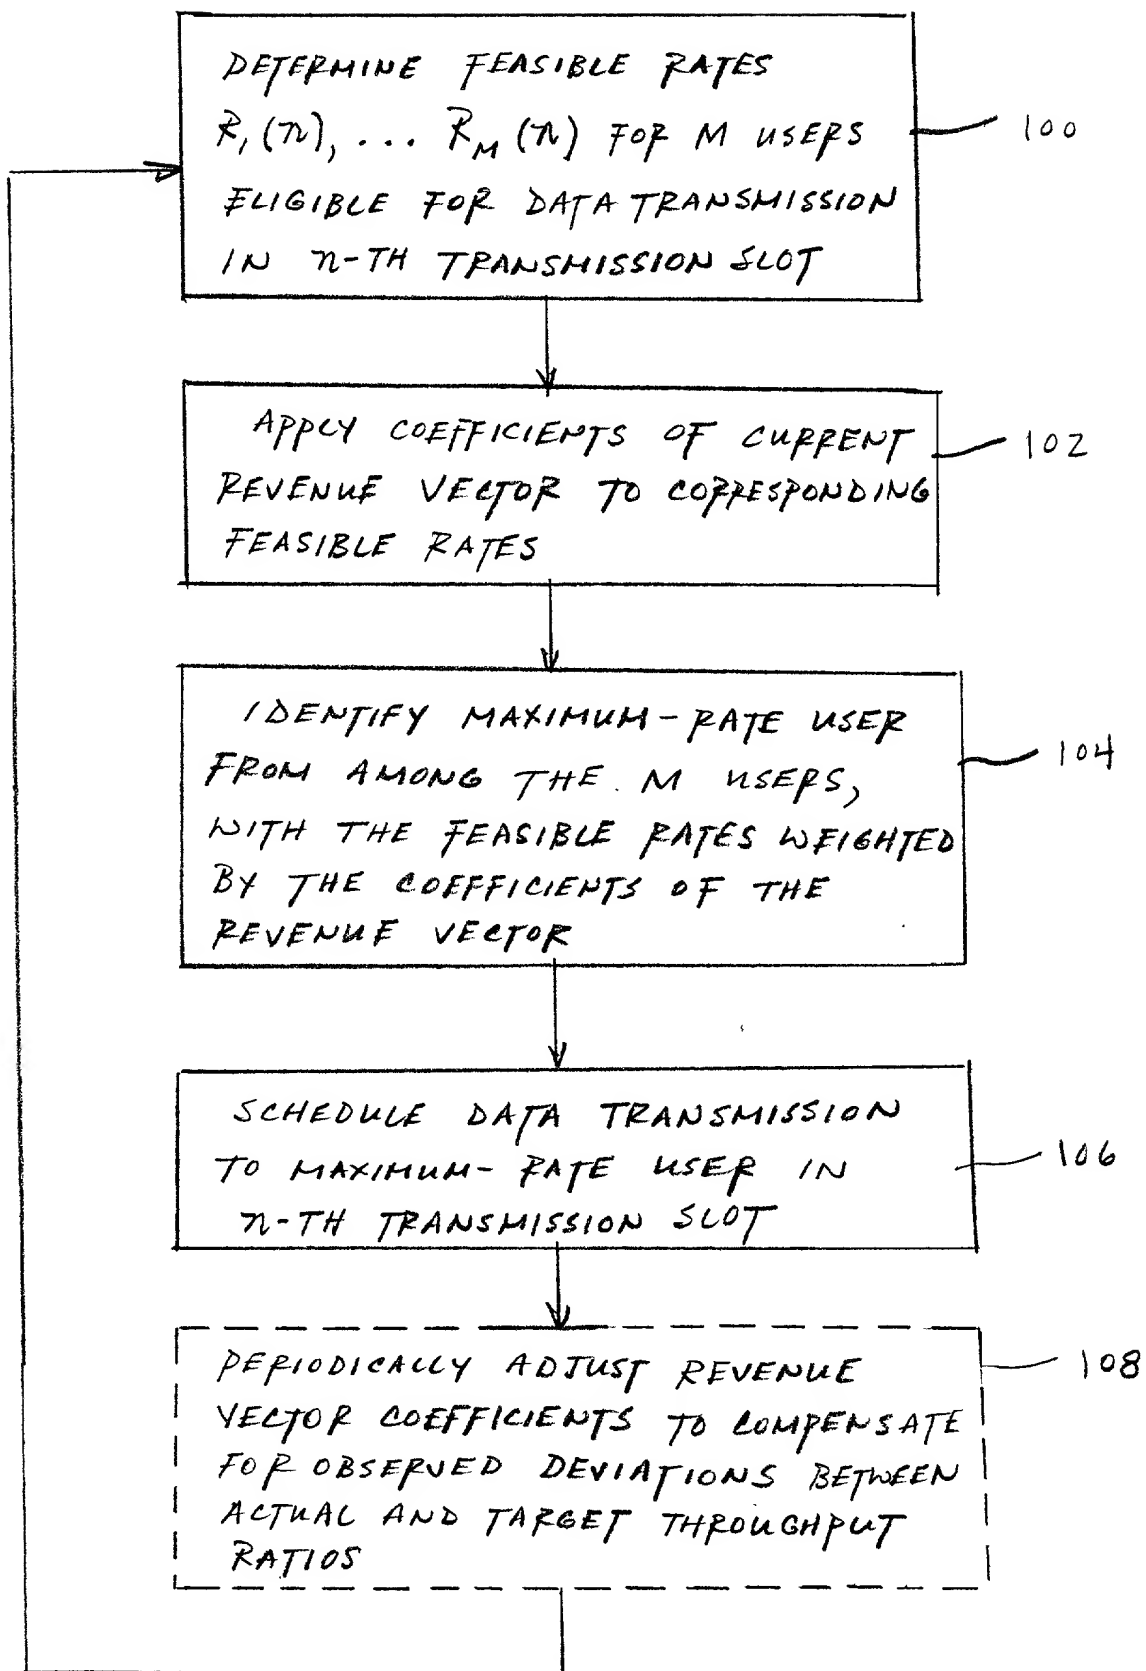 DETERMINE FEASIBLE RATES
R₁(n), ... R_M(n) FOR M USERS
ELIGIBLE FOR DATA TRANSMISSION
IN n-TH TRANSMISSION SLOT
100
APPLY COEFFICIENTS OF CURRENT
REVENUE VECTOR TO CORRESPONDING
FEASIBLE RATES
102
IDENTIFY MAXIMUM-RATE USER
FROM AMONG THE M USERS,
WITH THE FEASIBLE RATES WEIGHTED
BY THE COEFFICIENTS OF THE
REVENUE VECTOR
104
SCHEDULE DATA TRANSMISSION
TO MAXIMUM-RATE USER IN
n-TH TRANSMISSION SLOT
106
PERIODICALLY ADJUST REVENUE
VECTOR COEFFICIENTS TO COMPENSATE
FOR OBSERVED DEVIATIONS BETWEEN
ACTUAL AND TARGET THROUGHPUT
RATIOS
108